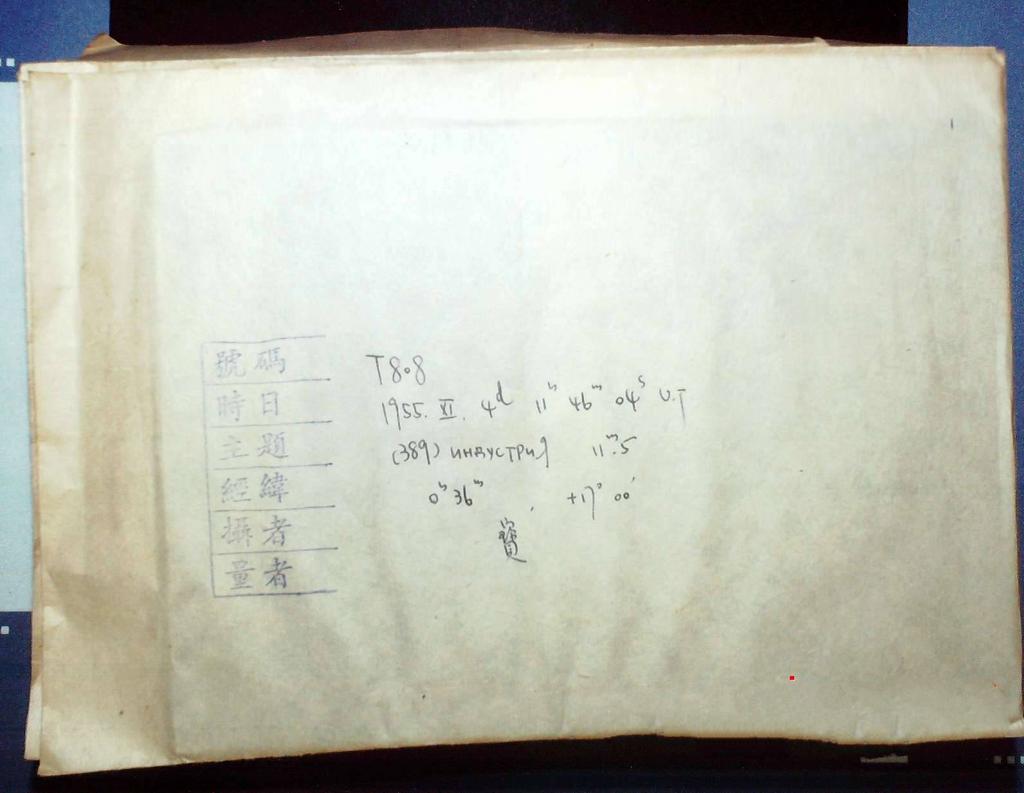 號碼 T808
時日 1955. XI. 4ᵈ 11ʰ 46ᵐ 04ˢ U.T
主題 (389) индустрия 11ᵐ.5
經緯 0ʰ 36ᵐ +17° 00′
攝者
量者